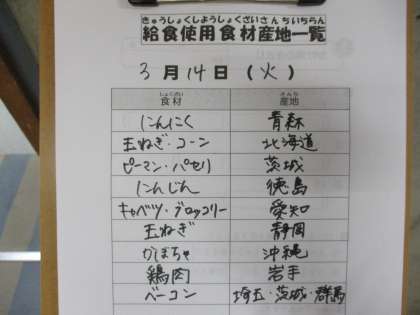 きゅうしょくしようしょくざいさんちいちらん
給食使用食材産地一覧
3月14日(火)
しょくざい さんち
食材 産地
にんにく 青森
玉ねぎ・コーン 北海道
ピーマン・パセリ 茨城
にんじん 徳島
キャベツ・ブロッコリー 愛知
玉ねぎ 静岡
かぼちゃ 沖縄
鶏肉 岩手
ベーコン 埼玉・茨城・群馬